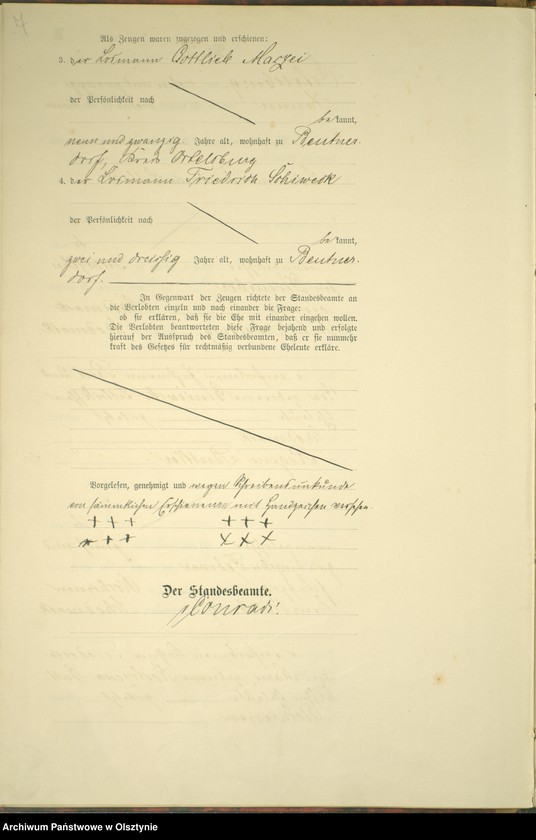 Als Zeugen waren zugezogen und erschienen:
3. der Losmann Gottlieb
der Persönlichkeit nach
bekannt,
neun und zwanzig Jahre alt, wohnhaft zu Beutner-
dorf, Kreis Ortelsburg
4. der Losmann Friedrich Schiweck
der Persönlichkeit nach
bekannt,
zwei und dreißig Jahre alt, wohnhaft zu Beutner-
dorf.
In Gegenwart der Zeugen richtete der Standesbeamte an
die Verlobten einzeln und nach einander die Frage:
ob sie erklären, daß sie die Ehe mit einander eingehen wollen.
Die Verlobten beantworteten diese Frage bejahend und erfolgte
hierauf der Ausspruch des Standesbeamten, daß er sie nunmehr
kraft des Gesetzes für rechtmäßig verbundene Eheleute erkläre.
Vorgelesen, genehmigt und wegen Schreibensunkunde
von sämmtlichen Erschienenen mit Handzeichen versehen.
+ + + + + +
+ + + x x x
Der Standesbeamte.
Conradi.
Archiwum Państwowe w Olsztynie